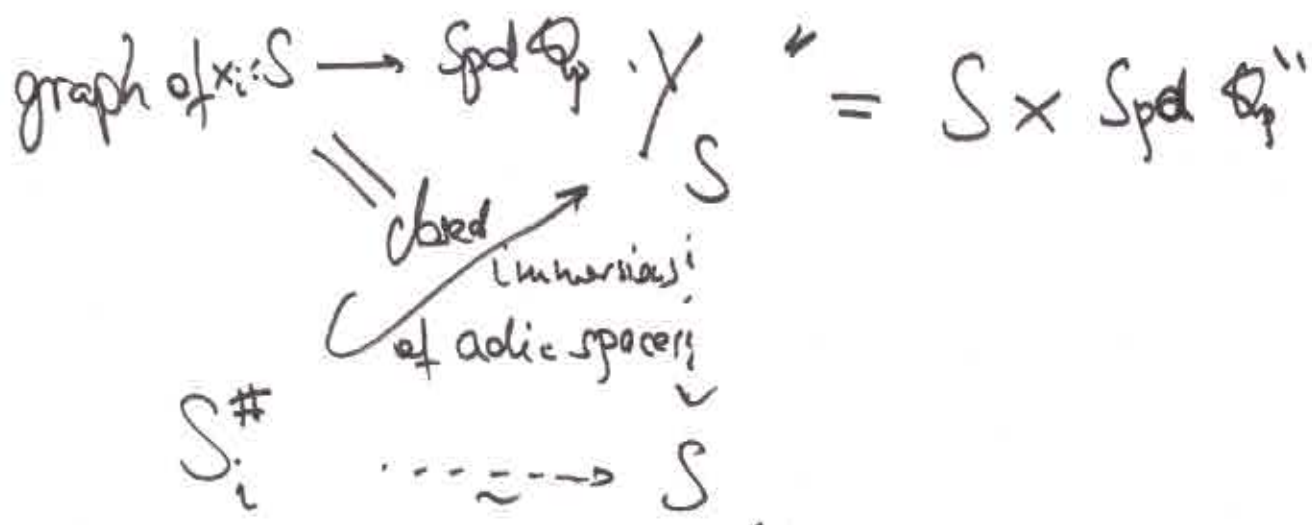 graph of xᵢ: S ⟶ Spd ℚₚ · Y_S " = S × Spd ℚₚ"
closed
immersions
of adic spaces
Sᵢ^# ⇢ S
~